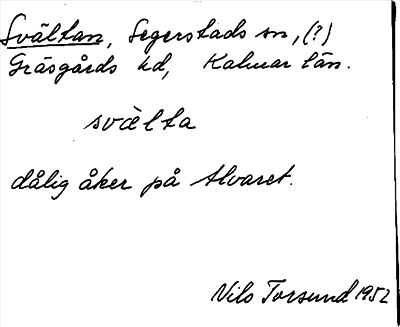 Svältan, Segerstads sn, (?)
Gräsgårds hd, Kalmar län.
svälta
dålig åker på Alvaret.
Nils Torsund 1952